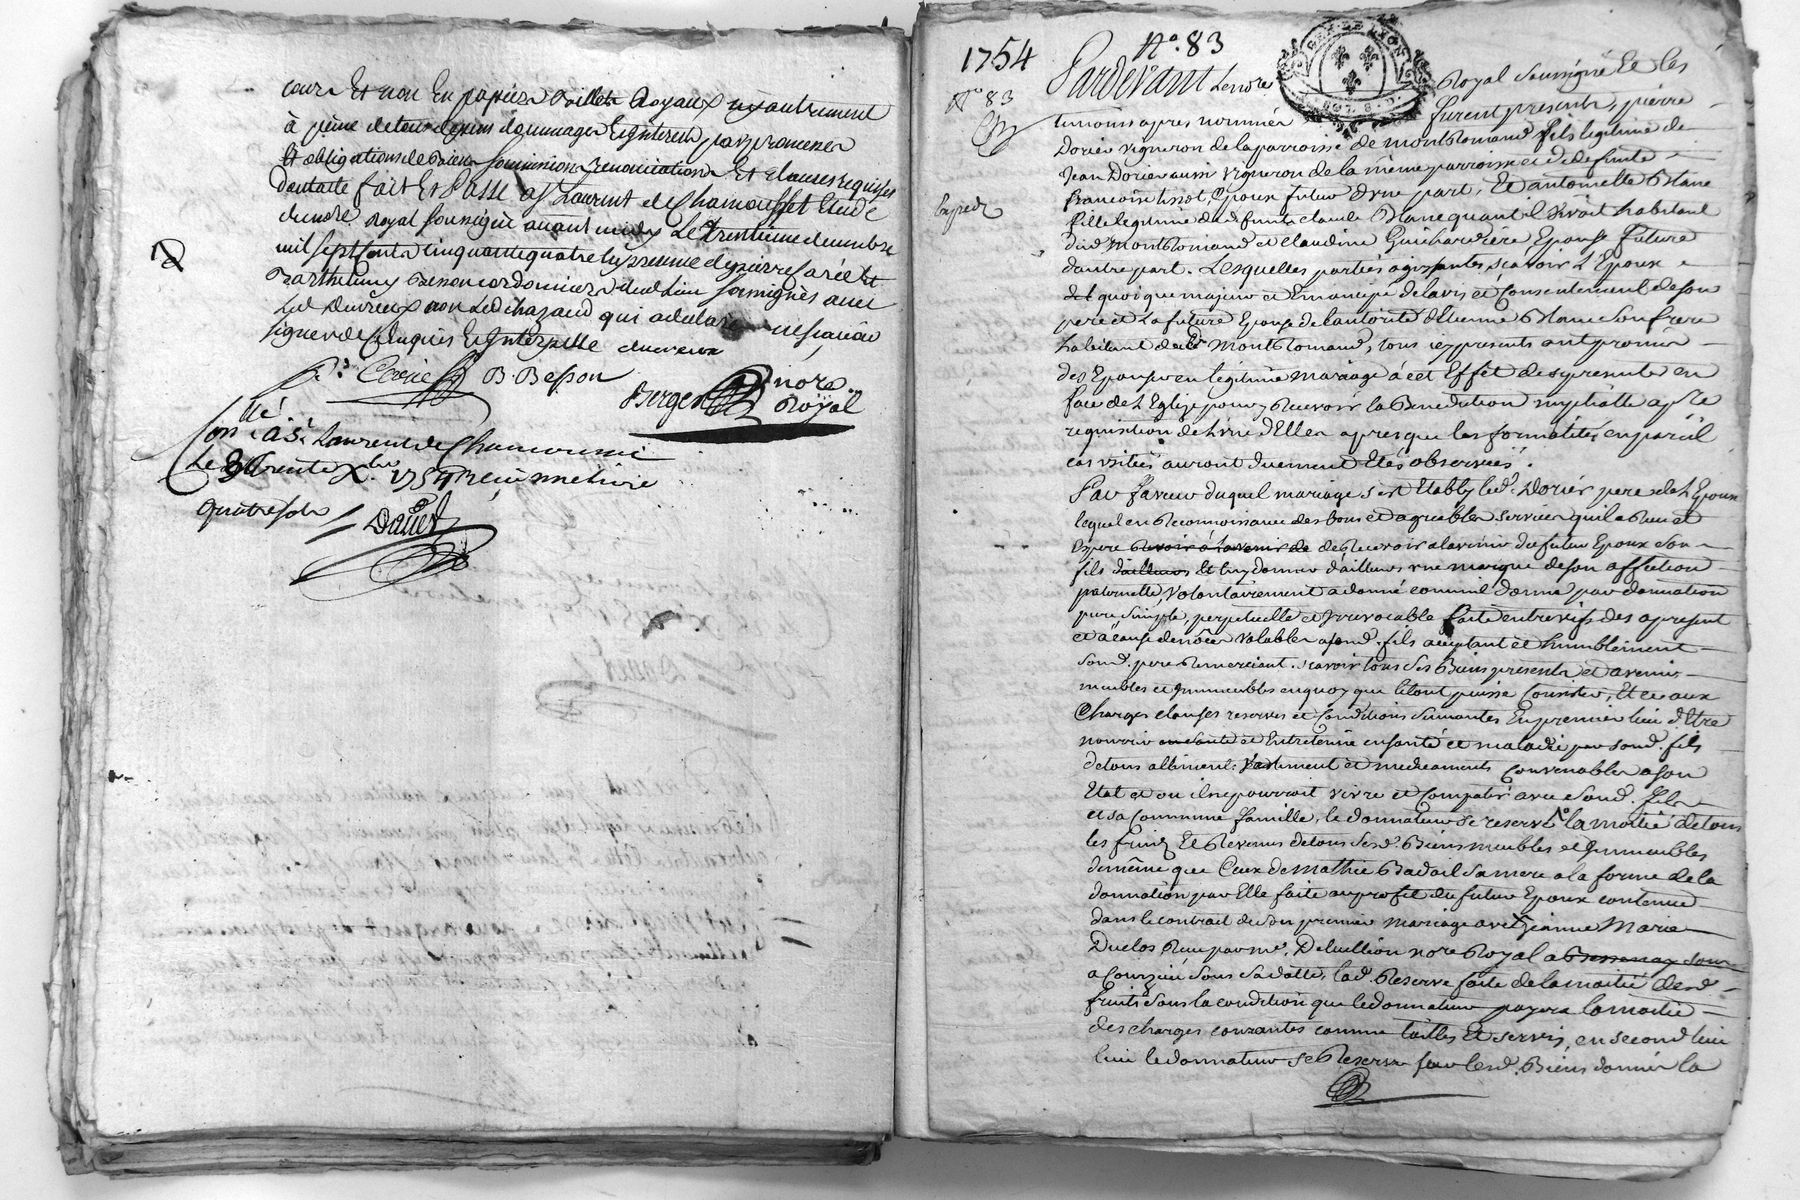 cours Et non En papiers billets Royaux ny autrement
à peine de tous depens dommages Et Interets, par promesses
Et obligations de biens soumissions renonciations Et clauses requises
dont acte fait Et Passé à St Laurent de Chamousset Etude
du nore royal soussigné avant midy Le trentieme decembre
mil sept cents cinquante quatre En presence de pierre
Barthelemy Besson cordonnier dud lieu soussignés avec
Led Duvreux non Led chazaud qui a declaré ne sçavoir
signer de ce Enquis Et Interpellé duvreux
B. Besson
Berger nore Royal
Conllé à St Laurent de Chamousset
Le trente Xbre 1754 Reçu
quatre sols
1754
No. 83
GEN. DE LYON
No 83
Pardevant Le nore Royal soussigné Et les
temoins apres nommés furent presents, pierre
Dorier vigneron de la parroisse de montromand fils legitime de
Jean Dorier aussi vigneron de la même parroisse et de defunte
francoise tissot, Epoux futur d'vne part, Et antoinette Blanc
fille legitime de defunt claude Blanc quant il vivoit habitant
dud. Montromand et claudine Guichardiere Epouse future
d'autre part. Lesquelles parties agissantes sçavoir L'Epoux
quoique majeur et Emancipé de l'avis et consentement de son
pere et La future Epouse de l'autorité d'Etienne Blanc son frere
habitant dud. Montromand, tous icy presents ont promis
des Epouser en legitime mariage à cet Effet de se presenter en
face de L'Eglise pour y Recevoir la Benediction nuptialle a p.re
requisition de L'vn d'Eux apres que les formalités en pareil
cas vsitées auront duement Etés observées.
En faveur duquel mariage s'est Etably led. Dorier pere de L'Epoux
lequel en Reconnoissance des bons et agreables services qu'il a Reçu et
Espere de Recevoir a l'avenir du futur Epoux son
fils Et luy donner d'ailleurs vne marque de son affection
paternelle, volontairement a donné comme il donne par donnation
pure, simple, perpetuelle et Irrevocable faite entre vifs des apresent
et à cause de nôces valables a sond. fils acceptant et humblement
sond. pere Remerciant. sçavoir tous ses Biens presents et avenir
meubles et Immeubles en quoy que le tout puisse consister, Et ce aux
Charges clauses reserves et conditions suivantes En premier lieu d'Etre
nourrir Et Entretenir en santé et maladie par sond. fils
de tous alliments, vestiment et medicaments convenables a son
Etat et ou il ne pourroit vivre et compatir avec sond. fils
et sa commune famille, le donnateur se reserve 1o la moitié de tous
les fruits Et Revenus de tous sesd. Biens meubles et Immeubles
de même que Ceux de Mathie Badail sa mere a la forme de la
donnation par Elle faite au profit du futur Epoux contenue
dans le contrat de son premier mariage avec Jeanne Marie
Duclos Reçu par Me. Delullion nore Royal
a Courzieu sous sa datte, lad. Reserve faite de la moitié desd.
fruits sous la condition que le donnateur payera la moitié
des charges courantes comme tailles Et servis, en second lieu
lieu le donnateur se Reserve sur lesd. Biens donnés la